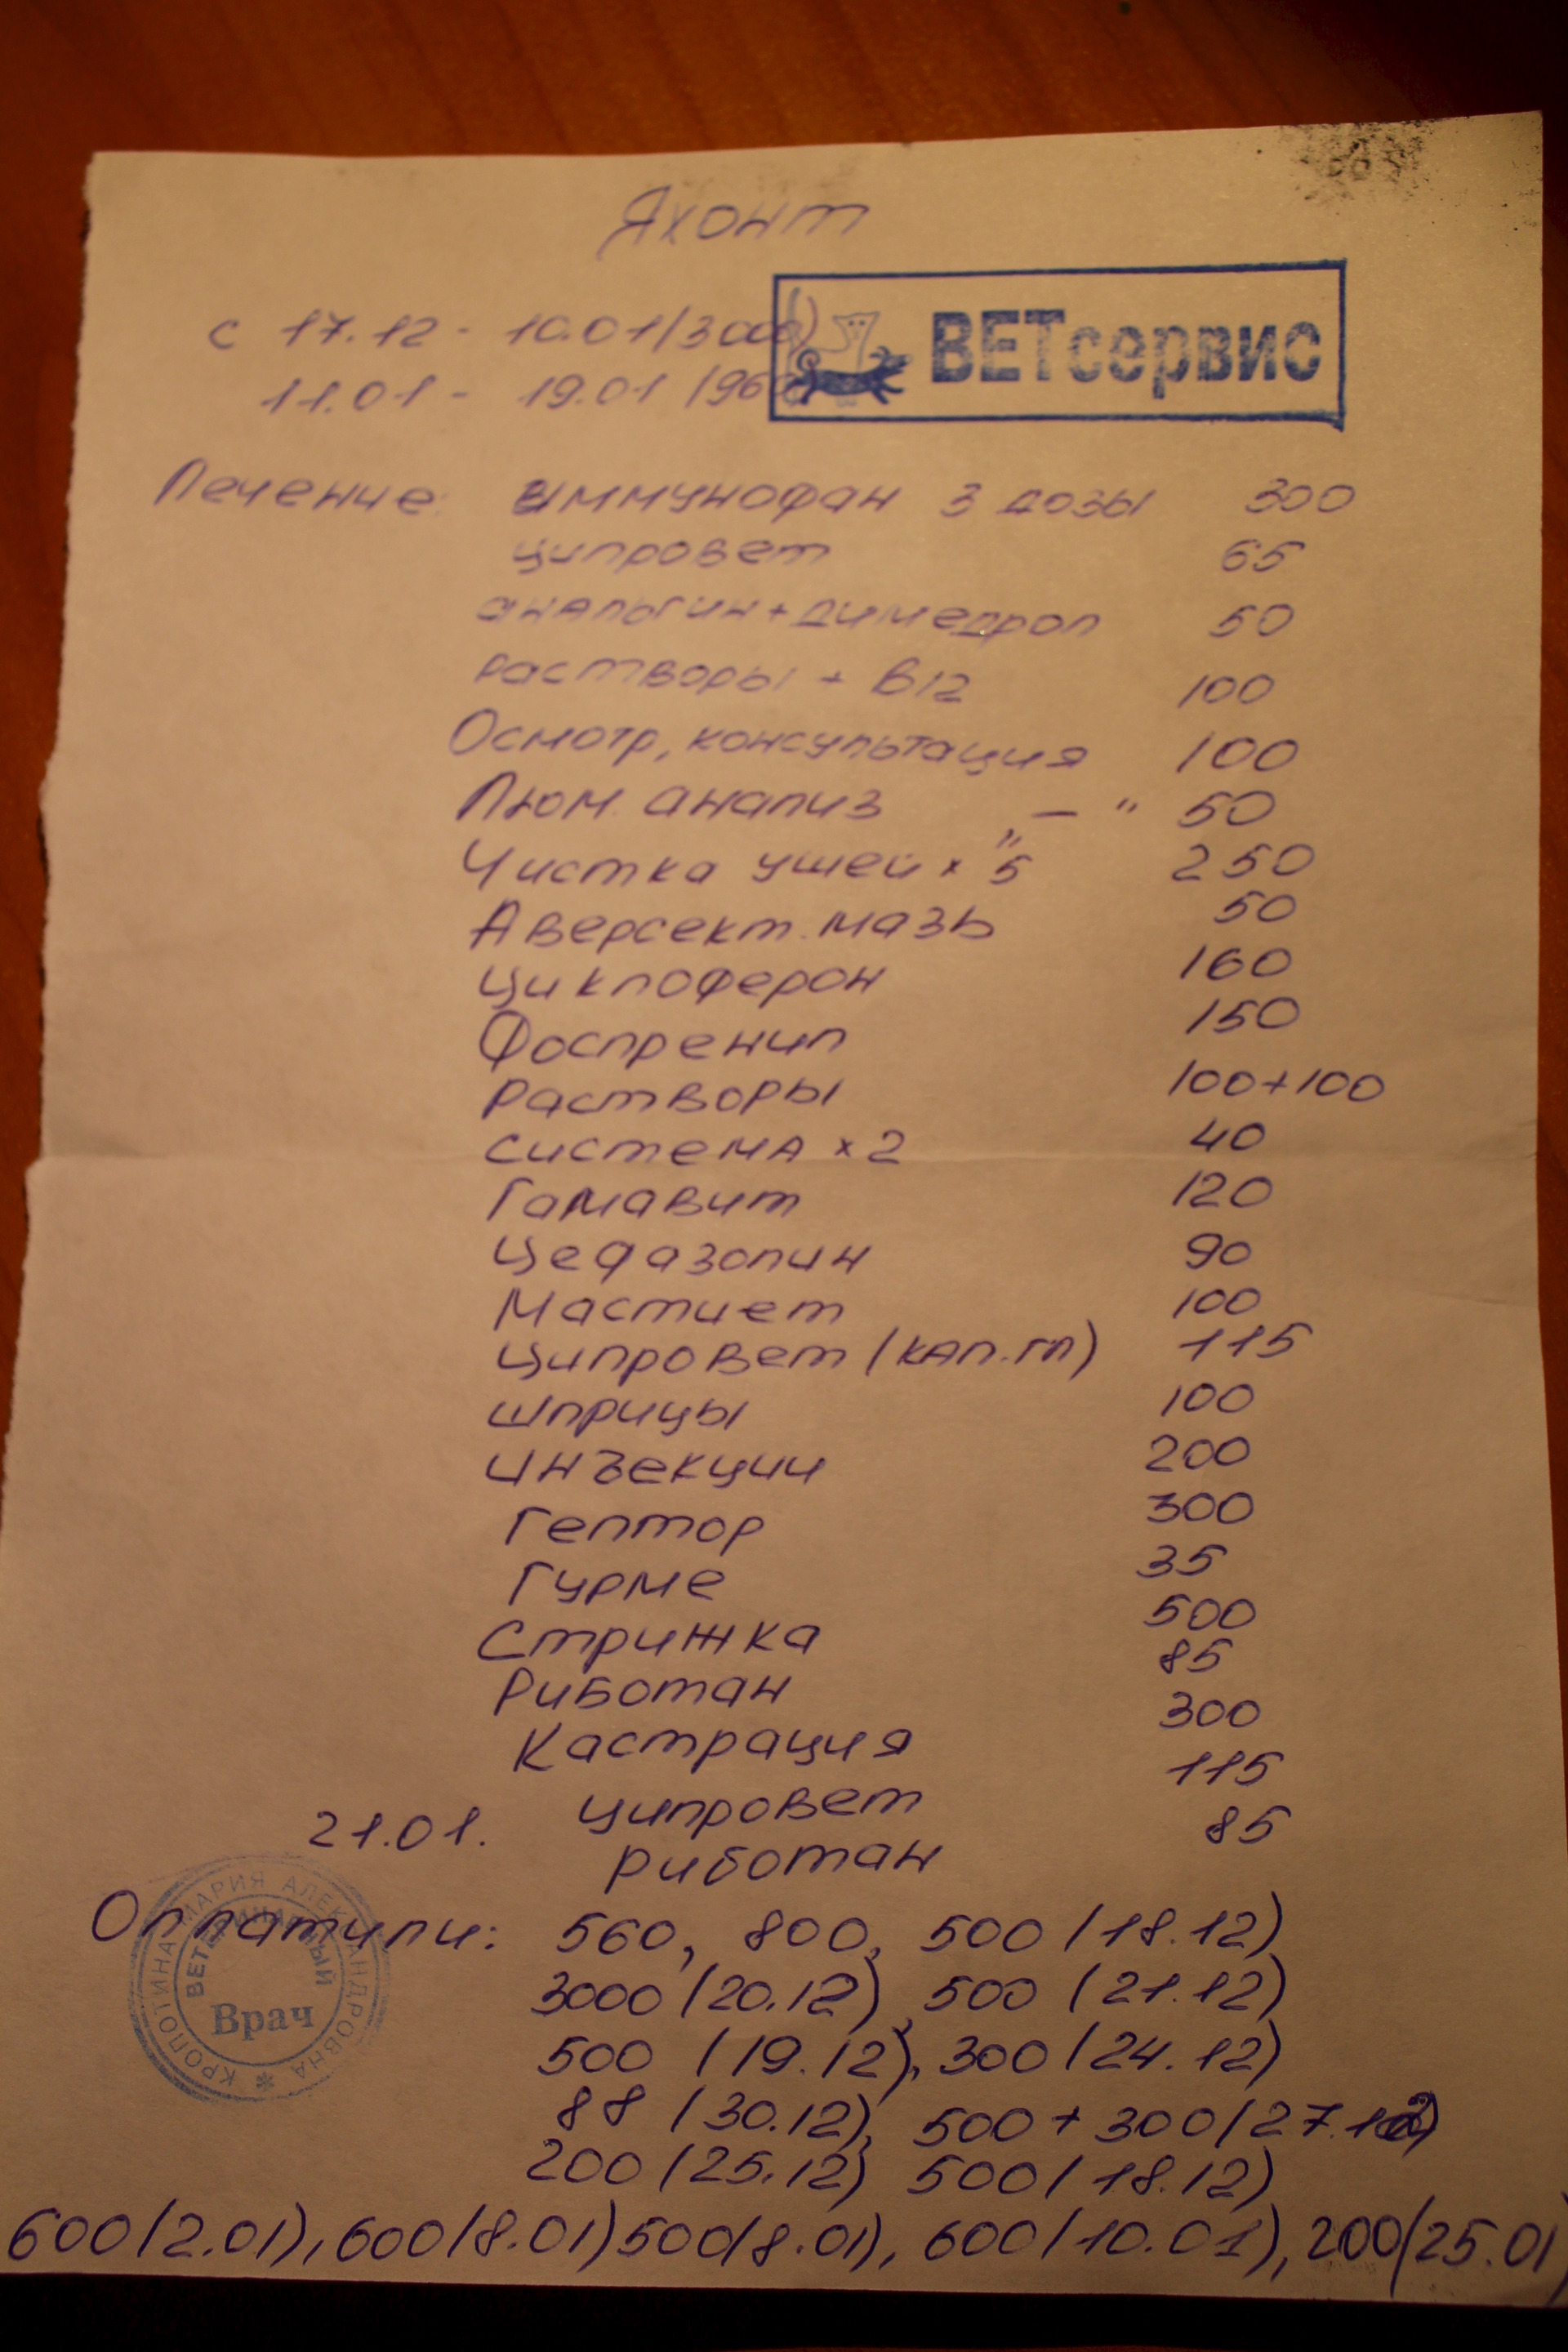 Яхонт
ВЕТсервис
с 17.12 - 10.01 (3000)
11.01 - 19.01 (960)
Лечение: иммунофан 3 дозы 300
ципровет 65
анальгин + димедрол 50
растворы + B12 100
Осмотр, консультация 100
Люм. анализ „ — “ 50
Чистка ушей × "5 250
Аверсект. мазь 50
Циклоферон 160
Фоспренил 150
Растворы 100+100
Система × 2 40
Гамавит 120
Цефазолин 90
Мастиет 100
Ципровет (кап. гл) 115
шприцы 100
инъекции 200
Гептор 300
Гурме 35
Стрижка 500
Риботан 85
Кастрация 300
21.01. ципровет 115
риботан 85
Оплатили: 560, 800, 500 (18.12)
3000 (20.12), 500 (21.12)
500 (19.12), 300 (24.12)
88 (30.12), 500 + 300 (27.12)
200 (25.12) 500 (18.12)
600 (2.01), 600 (8.01) 500 (8.01), 600 (10.01), 200 (25.01)
КРОПОТИНА МАРИЯ АЛЕКСАНДРОВНА
ВЕТЕРИНАРНЫЙ
Врач